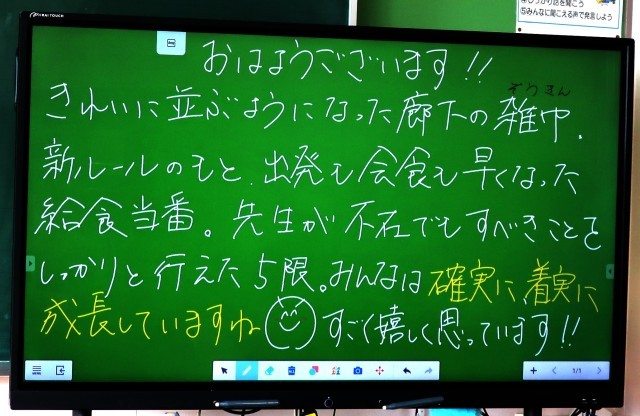 ④しっかり話を聞こう
⑤みんなに聞こえる声で発言しよう
おはようございます!!
ぞうきん
きれいに並ぶようになった廊下の雑巾。
新ルールのもと、出発も会食も早くなった
給食当番。先生が不在でもすべきことを
しっかりと行えた5限。みんなは確実に、着実に
成長していますね すごく嬉しく思っています!!
1/1